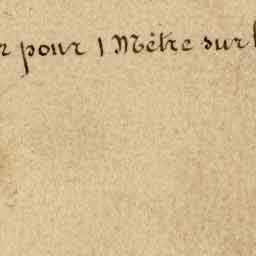 pour 1 Mètre sur